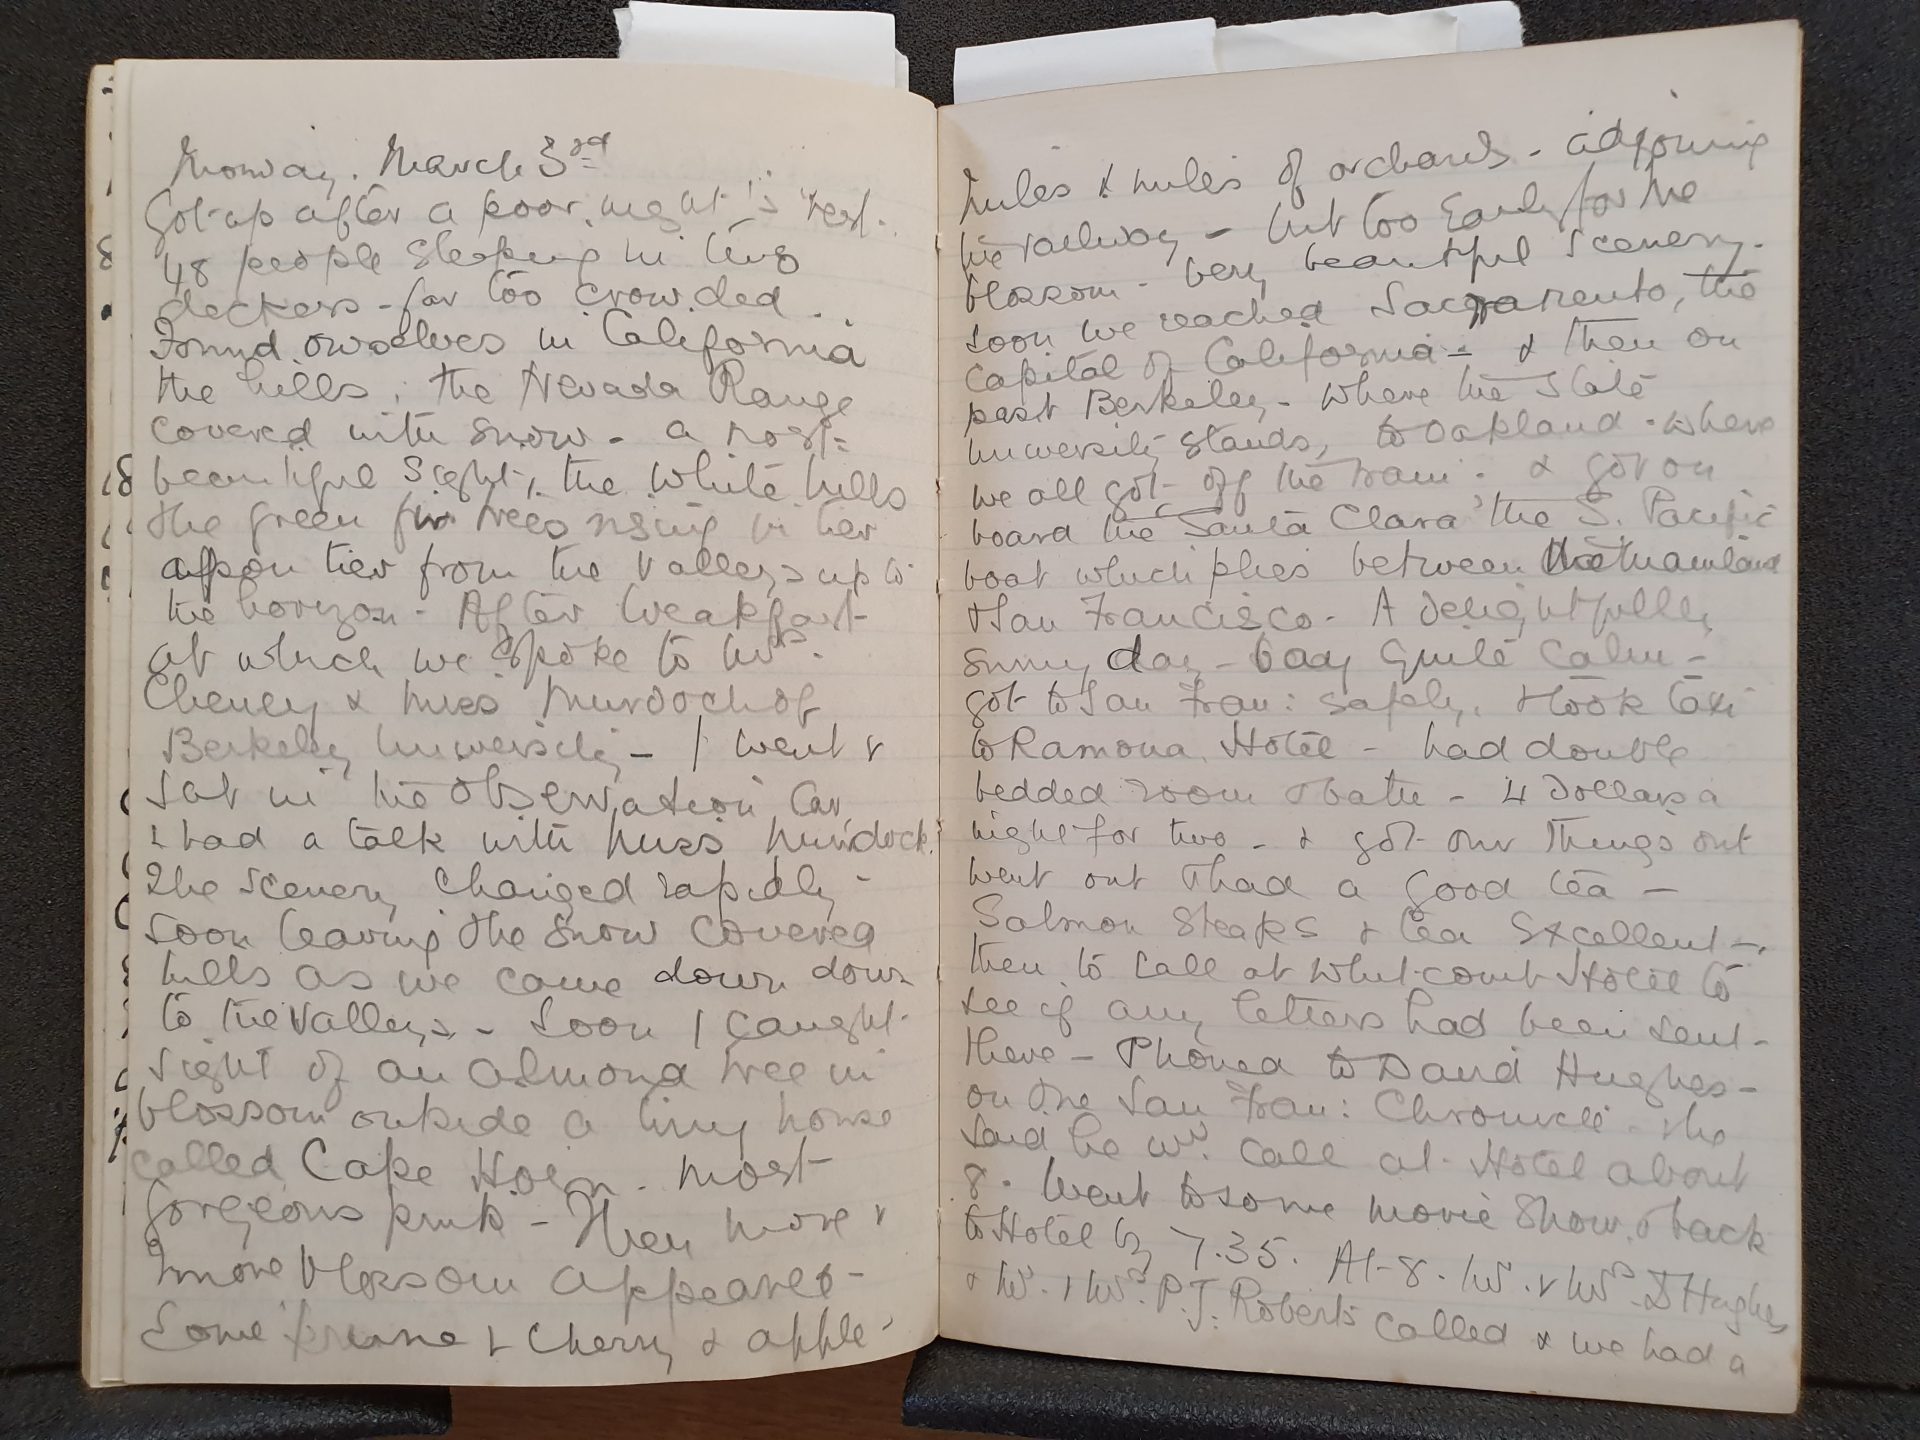 Monday. March 3rd
Got up after a poor night's rest.
48 people sleeping in two
deckers - far too crowded..
Found ourselves in California
the hills, the Nevada Range
covered with snow - a most
beautiful sight, the white hills
the green fir trees rising in tier
upon tier from the valleys up to
the horizon - After breakfast
at which we spoke to Mrs.
Cheney & Miss Murdoch of
Berkeley University - I went &
sat in the observation Car,
& had a talk with Miss Murdock.
The scenery changed rapidly -
soon leaving the snow covered
hills as we came down down
to the valleys - Soon I caught
sight of an almond tree in
blossom outside a tiny house
called Cape Horn. most
gorgeous pink - Then more &
more blossom appeared -
Some prune & cherry & apple -
miles & miles of orchards - adjoining
the railway - but too Early for the
blossom - very beautiful scenery.
soon we reached Sacramento, the
capital of California - & then on
past Berkeley - where the State
University stands, to Oakland - where
we all got off the train - & got on
board the Santa Clara the S. Pacific
boat which plies between the mainland
& San Francisco - A delightfully
sunny day - bay quite calm -
got to San Fran: safely, & took taxi
to Ramona Hotel - had double
bedded room & bath - 4 Dollars a
night for two - & got our things out
went out & had a good tea -
Salmon Steaks & tea Excellent -
then to call at Whitcomb Hotel to
see if any letters had been sent
there - Phoned to David Hughes -
on the San Fran: Chronicle - & he
said he wd. call at Hotel about
8. Went to some movie Show. & back
to Hotel by 7.35. At 8. Mr. & Mrs. D Hughes
& Mr. & Mrs. P.J. Roberts called & we had a